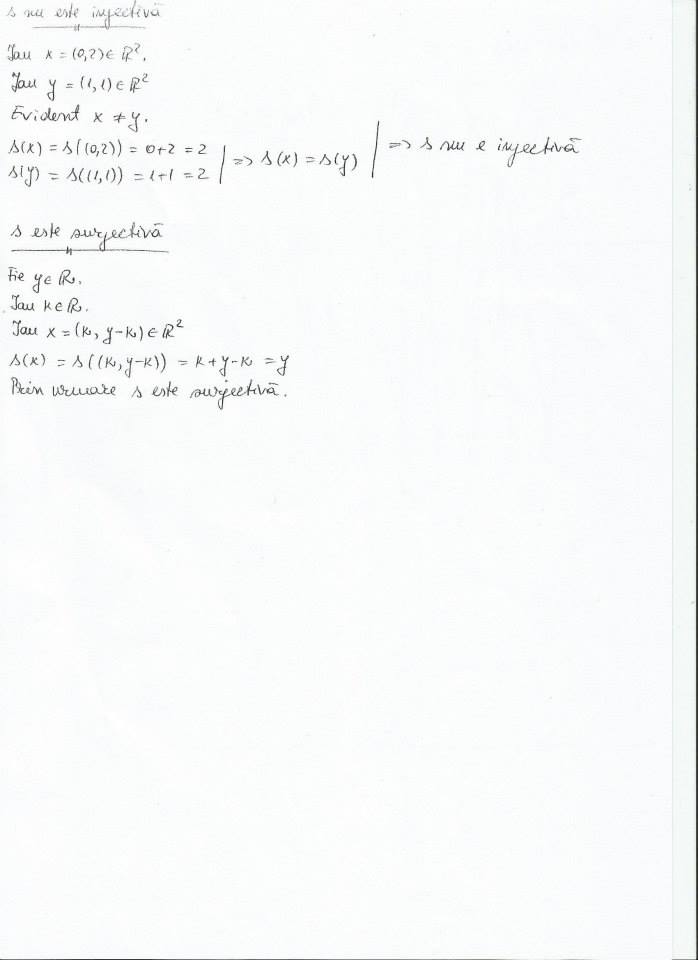 s nu este injectivă
Iau x = (0,2) ∈ ℝ².
Iau y = (1,1) ∈ ℝ²
Evident x ≠ y.
s(x) = s((0,2)) = 0+2 = 2
s(y) = s((1,1)) = 1+1 = 2 | => s(x) = s(y) | => s nu e injectivă
s este surjectivă
Fie y ∈ ℝ.
Iau k ∈ ℝ.
Iau x = (k, y-k) ∈ ℝ²
s(x) = s((k, y-k)) = k+y-k = y
Prin urmare s este surjectivă.